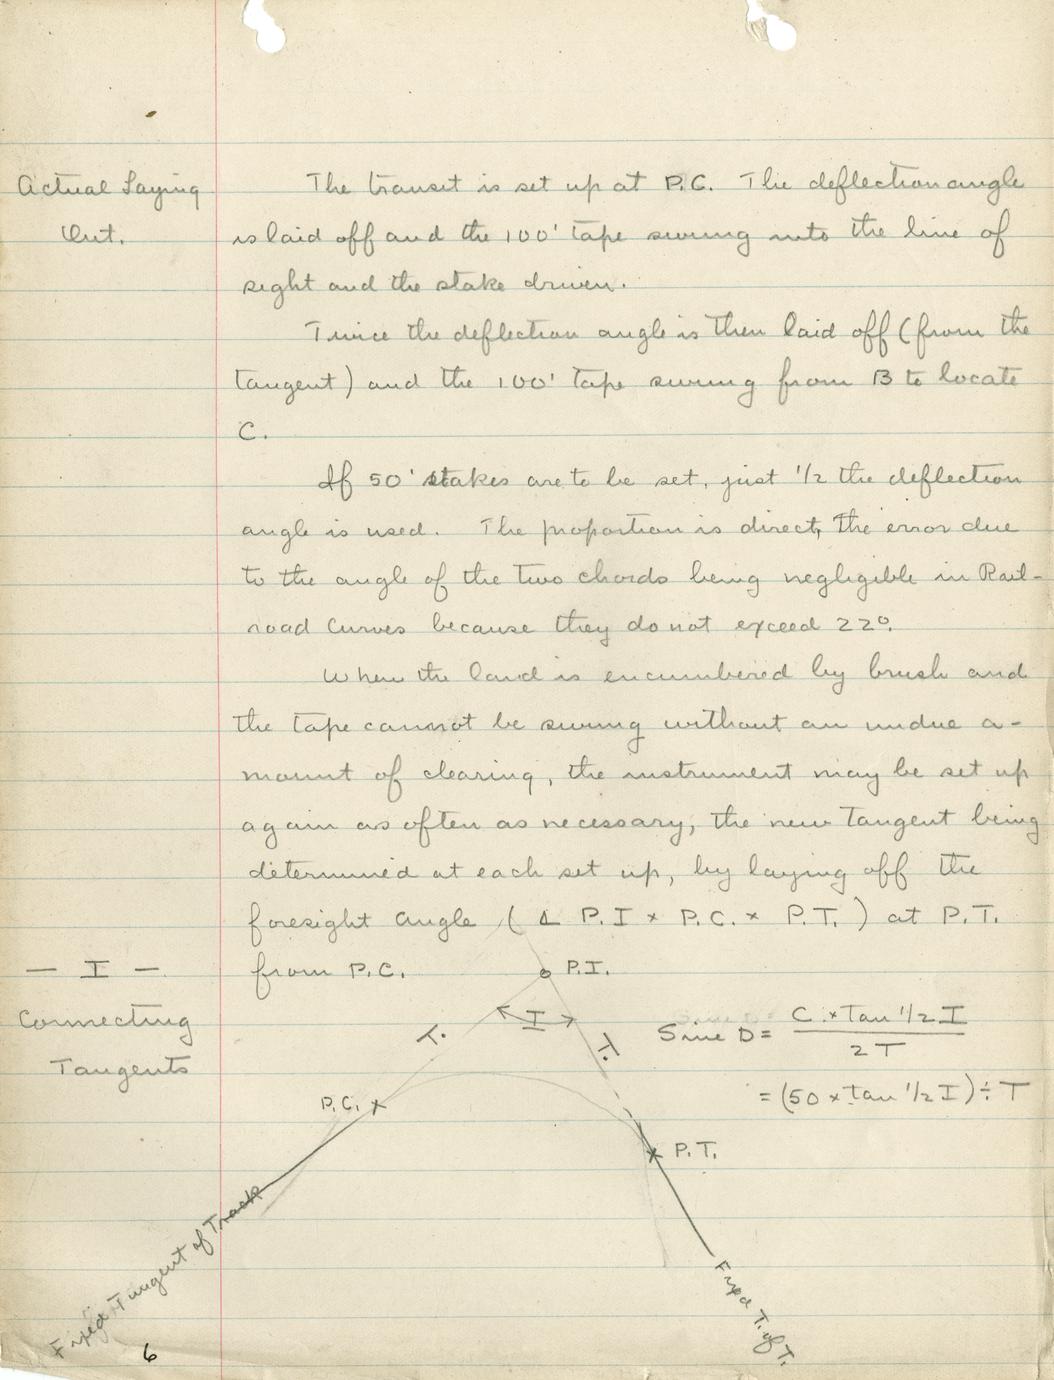 Actual Laying
Out.
The transit is set up at P.C. The deflection angle
is laid off and the 100' tape swung into the line of
sight and the stake driven.
Twice the deflection angle is then laid off (from the
tangent) and the 100' tape swung from B to locate
C.
If 50' stakes are to be set, just 1/2 the deflection
angle is used. The proportion is direct, the error due
to the angle of the two chords being negligible in Rail-
road Curves because they do not exceed 22°.
When the land is encumbered by brush and
the tape cannot be swung without an undue a-
mount of clearing, the instrument may be set up
again as often as necessary, the new tangent being
determined at each set up, by laying off the
foresight angle (∆ P.I × P.C. × P.T.) at P.T.
from P.C.
— I —
Connecting
Tangents
P.I.
I
T.
T.
Sine D = C. × Tan 1/2 I
2 T
= (50 × tan 1/2 I) ÷ T
P.C.
P.T.
Fixed Tangent of Track
Fixed T. of T.
6